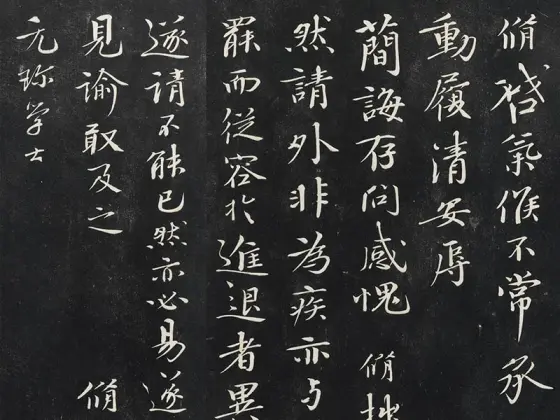 脩啓氣候不常承
動履清安辱
蕳誨存問感愧 脩
然請外非為疾亦与
罷而従容於進退者異
遂請不能已然亦必易遂
見諭敢及之 脩
元珎学士